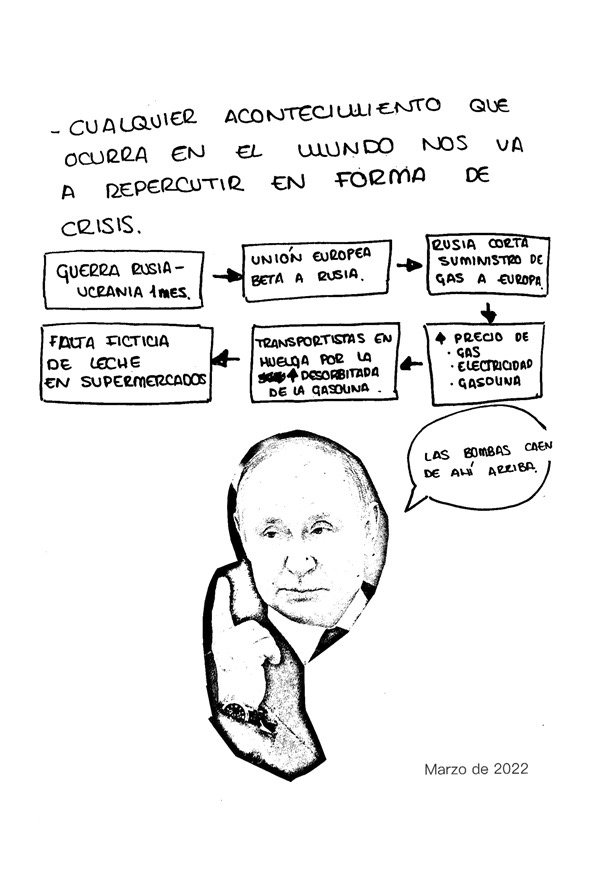 - CUALQUIER ACONTECIMIENTO QUE
OCURRA EN EL MUNDO NOS VA
A REPERCUTIR EN FORMA DE
CRISIS.
GUERRA RUSIA-
UCRANIA 1 MES.
UNIÓN EUROPEA
BETA A RUSIA.
RUSIA CORTA
SUMINISTRO DE
GAS A EUROPA.
↑ PRECIO DE
· GAS
· ELECTRICIDAD
· GASOLINA
TRANSPORTISTAS EN
HUELGA POR LA
↑ DESORBITADA
DE LA GASOLINA.
FALTA FICTICIA
DE LECHE
EN SUPERMERCADOS
LAS BOMBAS CAEN
DE AHÍ ARRIBA.
Marzo de 2022